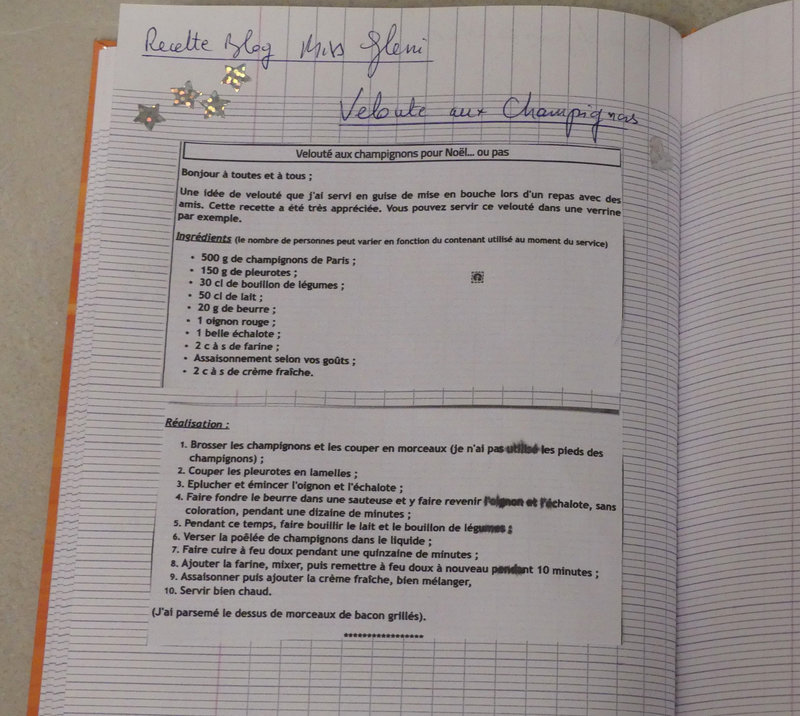 Recette Blog Miss Gleni
Velouté aux Champignons
Velouté aux champignons pour Noël... ou pas
Bonjour à toutes et à tous ;
Une idée de velouté que j'ai servi en guise de mise en bouche lors d'un repas avec des
amis. Cette recette a été très appréciée. Vous pouvez servir ce velouté dans une verrine
par exemple.
Ingrédients (le nombre de personnes peut varier en fonction du contenant utilisé au moment du service)
• 500 g de champignons de Paris ;
• 150 g de pleurotes ;
• 30 cl de bouillon de légumes ;
• 50 cl de lait ;
• 20 g de beurre ;
• 1 oignon rouge ;
• 1 belle échalote ;
• 2 c à s de farine ;
• Assaisonnement selon vos goûts ;
• 2 c à s de crème fraîche.
Réalisation :
1. Brosser les champignons et les couper en morceaux (je n'ai pas utilisé les pieds des
champignons) ;
2. Couper les pleurotes en lamelles ;
3. Eplucher et émincer l'oignon et l'échalote ;
4. Faire fondre le beurre dans une sauteuse et y faire revenir l'oignon et l'échalote, sans
coloration, pendant une dizaine de minutes ;
5. Pendant ce temps, faire bouillir le lait et le bouillon de légumes ;
6. Verser la poêlée de champignons dans le liquide ;
7. Faire cuire à feu doux pendant une quinzaine de minutes ;
8. Ajouter la farine, mixer, puis remettre à feu doux à nouveau pendant 10 minutes ;
9. Assaisonner puis ajouter la crème fraîche, bien mélanger,
10. Servir bien chaud.
(J'ai parsemé le dessus de morceaux de bacon grillés).
*****************